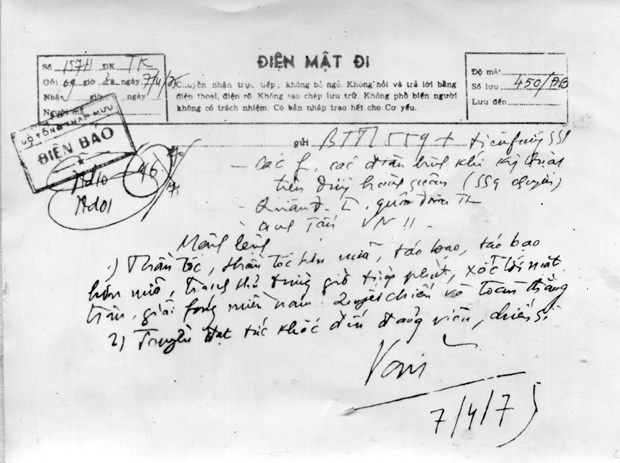 Số 157H ĐK TK
Gửi giờ ngày 7/4/75
Nhận giờ ngày
Người mã
ĐIỆN MẬT ĐI
Chuyển nhận trực tiếp; không bỏ ngỏ. Không hỏi và trả lời bằng
điện thoại, điện rõ. Không sao chép lưu trữ. Không phổ biến người
không có trách nhiệm. Có bản nháp trao hết cho Cơ yếu.
Độ mật
Số lưu 450/ĐB
Lưu đến
BỘ TỔNG THAM MƯU
ĐIỆN BÁO
46
gửi BTTL 559 +
- các f, các đơn vị binh khí kỹ thuật
trên đường hành quân (559 chuyển)
- Quân đ. I, quân đoàn
VN 11.
Mệnh lệnh
1) Thần tốc, thần tốc hơn nữa, táo bạo, táo bạo
hơn nữa, tranh thủ từng giờ từng phút, xốc tới mặt
trận, giải fóng miền nam. Quyết chiến và toàn thắng
2) Truyền đạt tức khắc đến đảng viên, chiến sĩ
Văn
7/4/75